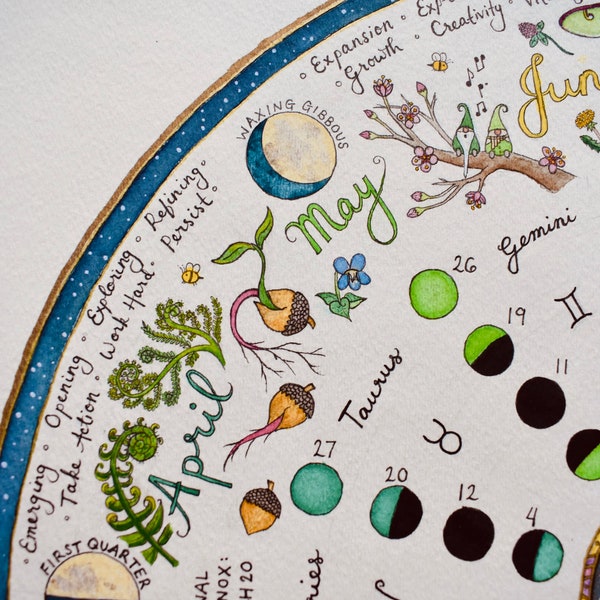 ° Expansion °
° Growth ° Creativity °
WAXING GIBBOUS
° Emerging ° Opening ° Exploring ° Refining °
° Take Action ° Work Hard ° Persist °
FIRST QUARTER
May
April
Gemini
26
19
11
Taurus
27
20
12
4